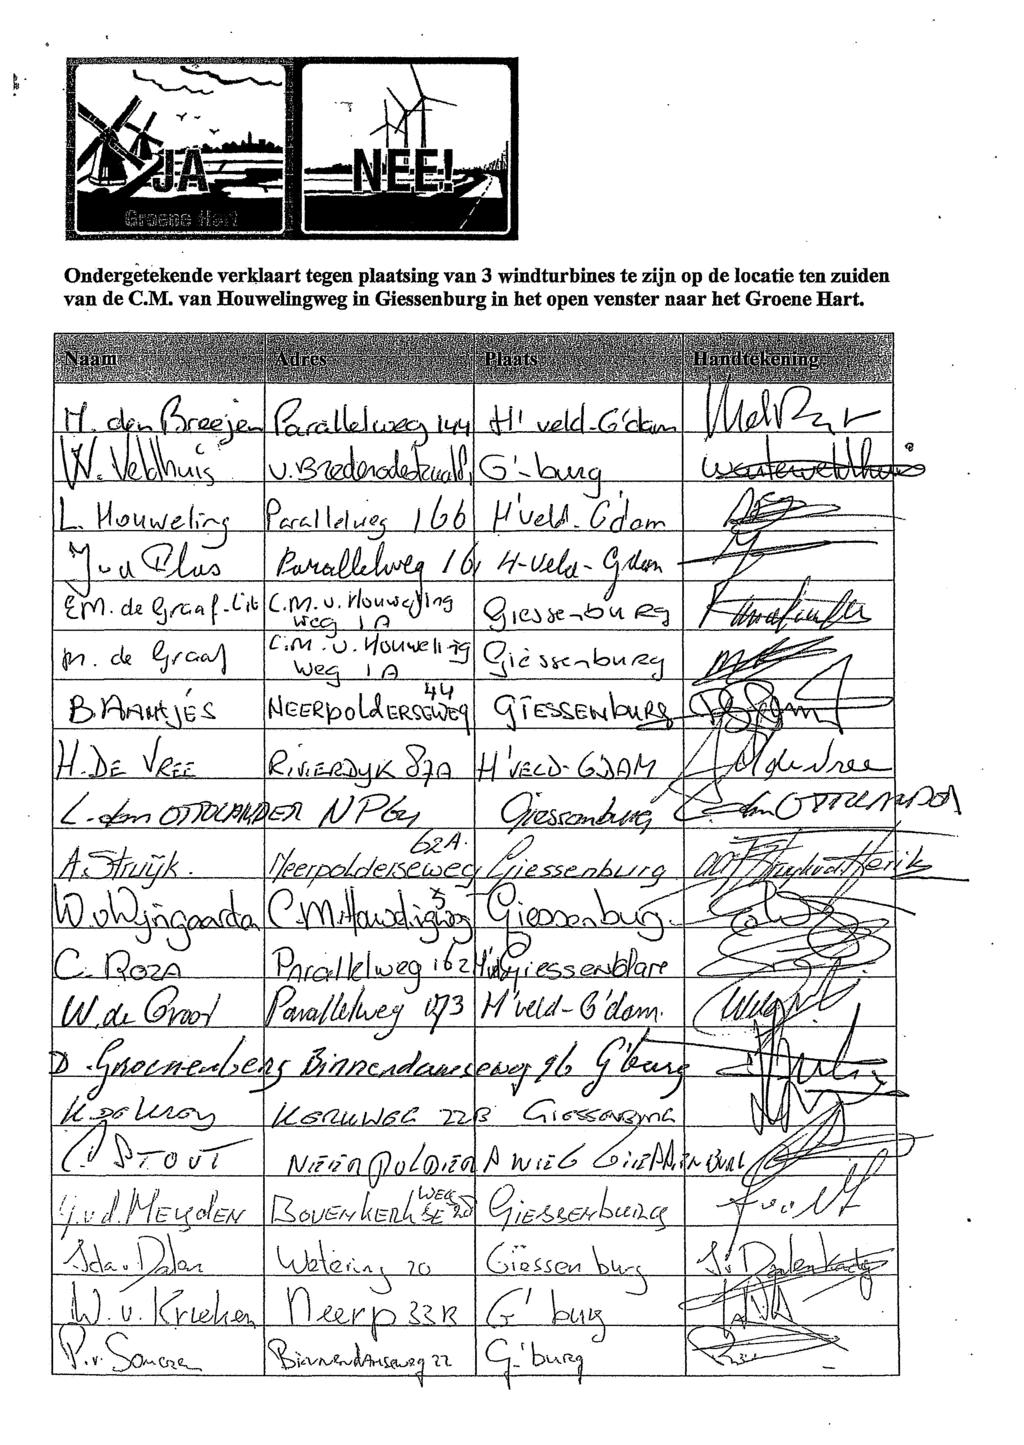 JA
Groene Hart
NEE!
Ondergetekende verklaart tegen plaatsing van 3 windturbines te zijn op de locatie ten zuiden
van de C.M. van Houwelingweg in Giessenburg in het open venster naar het Groene Hart.
Naam Adres Plaats Handtekening
M. den Breejen Parallelweg 144 H'veld-G'dam
W. Veldhuis G'-burg
L. Houweling Parallelweg 166 H'veld-G'dam
Parallelweg H-veld-Gdam
EM. de Graaf-Lit C.M.v. Houweling Giessenburg
weg 1A
m. de Graaf C.M. v. Houweling Giessenburg
weg 1A
44
B. AANTJES NEERPOLDERSEWEG GIESSENBURG
H. DE VREE RIVIERDYK 87A H'VELD-G'DAM H de Vree
L. den OTTOLANDER Giessenburg L. den OTTOLANDER
62A.
A. Struijk. Neerpolderseweg Giessenburg
W.v Wijngaarden Giessenburg
C. ROZA Parallelweg 162 Giessenblare
W. de Groot Parallelweg H'veld-G'dam.
D. Groenenberg Binnendamseweg 96 G'burg
KERKWEG 22B GIESSENBURG
STOUT
WEG
G.v.d. MEIJDEN BOVENKERKSE 20 GIESSENBURG
Wetering 20 Giessenburg
W. v. Krieken Neerp 33B G' burg
P. v. Someren Binnendamseweg 22 G-'burg